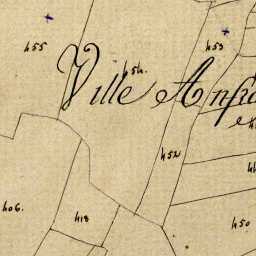 455
453
454.
Ville Ansi
452
406.
418
450